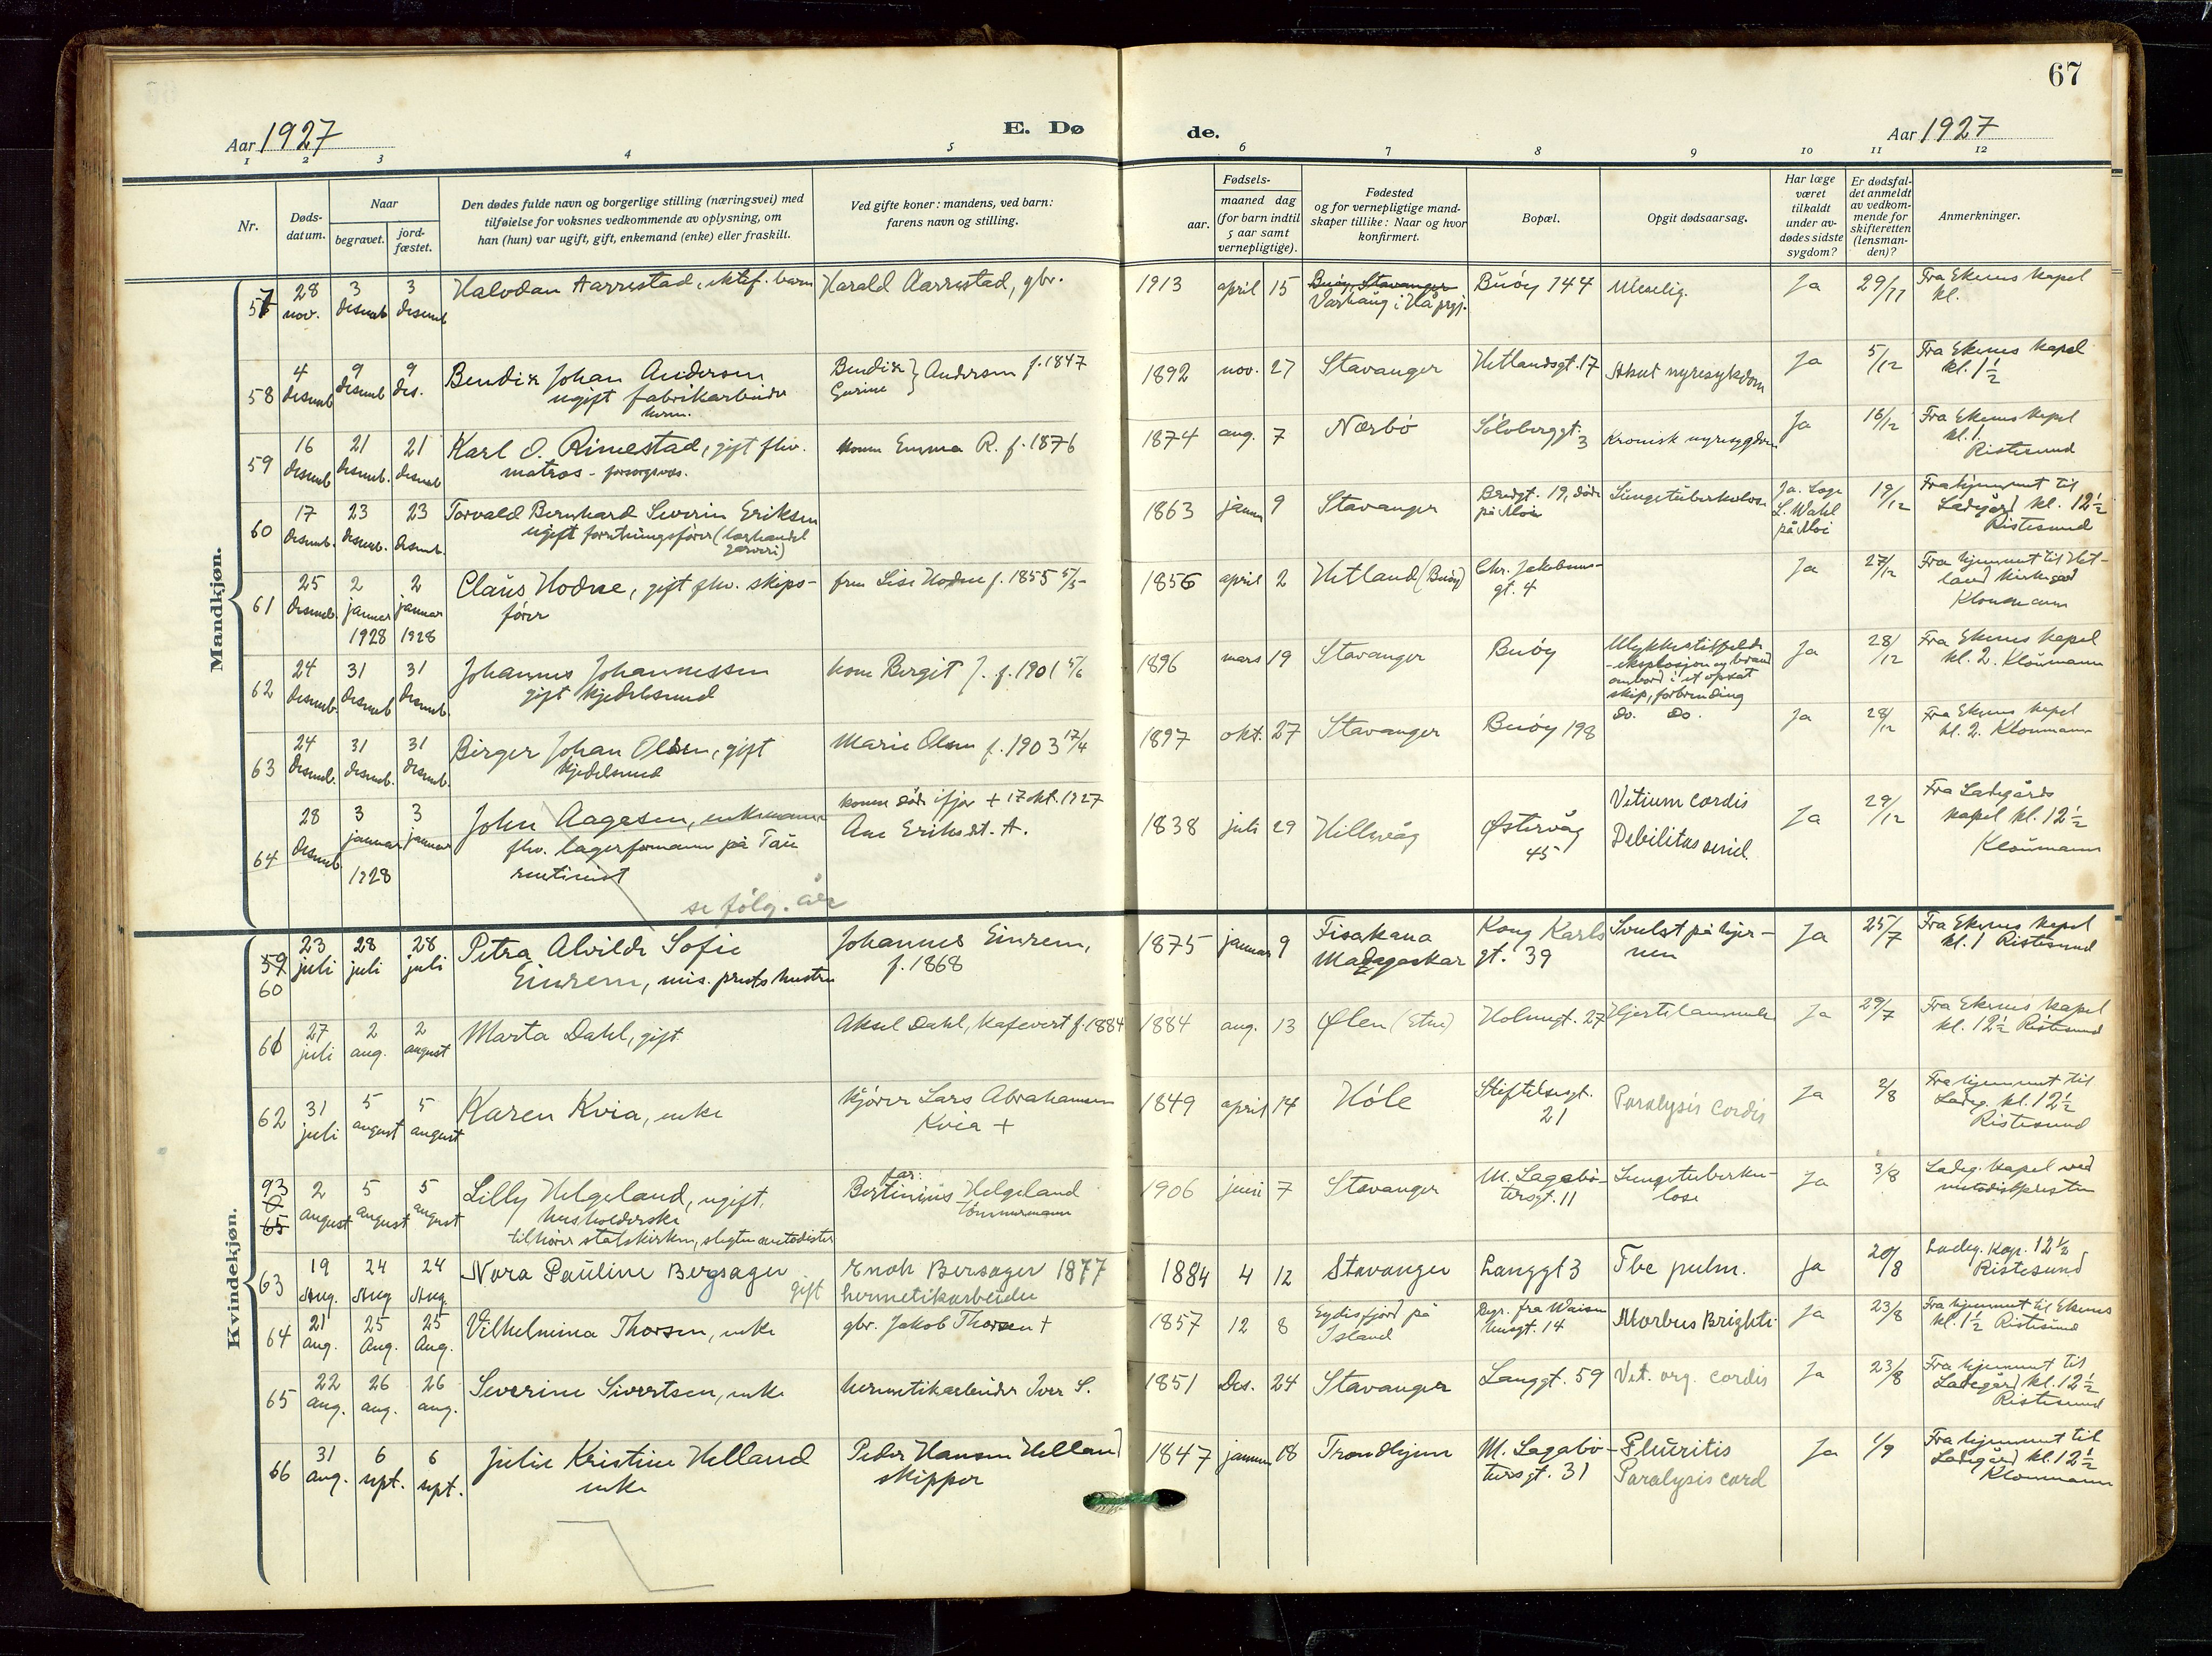 67
Aar 1927
E. Dø
de.
Aar 1927
1 2 3 4 5 6 7 8 9 10 11 12
Nr.
Døds-
datum.
Naar
begravet.
jord-
fæstet.
Den dødes fulde navn og borgerlige stilling (næringsvei) med
tilføielse for voksnes vedkommende av oplysning, om
han (hun) var ugift, gift, enkemand (enke) eller fraskilt.
Ved gifte koner: mandens, ved barn:
farens navn og stilling.
Fødsels-
aar.
maaned dag
(for barn indtil
5 aar samt
vernepligtige).
Fødested
og for vernepligtige mand-
skaper tillike: Naar og hvor
konfirmert.
Bopæl.
Opgit dødsaarsag.
Har læge
været
tilkaldt
under av-
dødes sidste
sygdom?
Er dødsfal-
det anmeldt
av vedkom-
mende for
skifteretten
(lensman-
den)?
Anmerkninger.
Mandkjøn.
57 28 nov. 3 desemb 3 desemb Halvdan Aarrestad, ektef. barn Harald Aarrestad, gbr. 1913 april 15 Buøy, Stavanger
Varhaug i Hå prgj. Buøy 144 Uleselig. Ja 29/11 Fra Ekenes kapel
kl.
58 4 desemb 9 desemb 9 des. Bendix Johan Andersen
ugift fabrikarbeider
herm. Bendix
Gurine } Andersen f. 1847 1892 nov. 27 Stavanger Hetlandsgt. 17 Akut nyresykdom Ja 5/12 Fra Ekenes kapel
kl. 1 1/2
59 16 desemb 21 desemb. 21 desemb Karl O. Rimestad, gift fhv.
matros - forsorgsvæs. kone Emma R. f. 1876 1874 aug. 7 Nærbø Sølvberggt.
3 Kronisk nyresygdom Ja 16/12 Fra Ekenes kapel
kl. 1.
Ristesund
60 17 desemb. 23 desemb. 23 desemb. Torvald Bernhard Severin Eriksen
ugift forretningsfører (lærhandel
garveri) 1863 januar 9 Stavanger Bredgt. 19, døde
på Moi Lungetuberkulose Ja. Læge
L. Wahl
på Moi 19/12 Fra hjemmet til
Ladegård kl. 12 1/2
Ristesund
61 25 desemb. 2 januar 1928 2 januar 1928 Claus Hodne, gift fhv. skips-
fører fru Lise Hodne f. 1855 5/5 1856 april 2 Hetland (Buøy) Chr. Jakobsens-
gt. 4 Ja 27/12 Fra hjemmet til Het-
land kirkegård
Kloumann
62 24 desemb. 31 desemb 31 desemb. Johannes Johannessen
gift kjedelsmed kone Birgit J. f. 1901 5/6 1896 mars 19 Stavanger Buøy Ulykkestilfelde
-eksplosjon og brand
ombord i et opsat
skip, forbrending Ja 28/12 Fra Ekenes kapel
kl. 2. Kloumann
63 24 desemb. 31 desemb. 31 desemb. Birger Johan Olsen, gift
kjedelsmed Marie Olsen f. 1903 17/4 1897 okt. 27 Stavanger Buøy 198 do. do. Ja 28/12 Fra Ekenes kapel
kl. 2. Kloumann
64 28 desemb. 3 januar 1928 3 januar John Aagesen, enkemann
fhv. lagerformann på Tau
rentenist
se følg. år
konen døde ifjor + 17 okt. 1927
Ane Eriksdt. A. 1838 juli 29 Hillevåg Østervåg
45 Vitium cordis
Debilitas senil. Ja 29/12 Fra Ladegårds
kapel kl. 12 1/2
Kloumann
Kvindekjøn.
59
60 23 juli 28 juli 28 juli Petra Alvilde Sofie
Einrem, mis. prests hustru Johannes Einrem,
f. 1868 1875 januar 9 Fisakana
Madagaskar Kong Karls
gt. 39 Svulst på hjer-
nen Ja 25/7 Fra Ekenes kapel
kl. 1 Ristesund
61 27 juli 2 aug. 2 august Marta Dahl, gift Aksel Dahl, kafevert f. 1884 1884 aug. 13 Ølen (Etne) Holmegt. 27 Hjertelammelse Ja 29/7 Fra Ekenes kapel
kl. 12 1/2 Ristesund
62 31 juli 5 august 5 august Karen Kvia, enke kjører Lars Abrahamsen
Kvia + 1849 april 14 Høle Stiftelsesgt.
21 Paralysis cordis Ja 2/8 Fra hjemmet til
Ladeg. kl. 12 1/2
Ristesund
93
65 2 august 5 august 5 august Lilly Helgeland, ugift,
husholderske
tilhører statskirken, slegten metodister far:
Bertinius Helgeland
tømmermann 1906 juni 7 Stavanger M. Lagabø-
tersgt. 11 Lungetuberku-
lose Ja 3/8 Ladeg. kapel ved
metodistpresten
63 19 Aug. 24 Aug 24 Aug. Nora Pauline Bergsager
gift Enok Bersager 1877
hermetikarbeider 1884 4 12 Stavanger Langgt 3 Tbc pulm. Ja 20/8 Ladeg. Kap. 12 1/2
Ristesund
64 21 aug. 25 Aug. 25 Aug. Vilhelmina Thorsen, enke gbr. Jakob Thorsen + 1857 12 8 Eydisfjord på
Island Begr. fra Waisen
husgt. 14 Morbus Brighti Ja 23/8 Fra hjemmet til Ekenes
kl. 1 1/2 Ristesund
65 22 aug. 26 aug. 26 aug. Severine Sivertsen, enke hermetikarbeider Iver S. 1851 Des. 24 Stavanger Langgt. 59 Vit. org. cordis Ja 23/8 Fra hjemmet til
Ladegård kl. 12 1/2
Ristesund
66 31 aug. 6 sept. 6 sept. Julie Kristine Helland
enke Peder Hansen Helland
skipper 1847 januar 18 Trondhjem M. Lagabø-
tersgt. 31 Pleuritis
Paralysis cord Ja 1/9 Fra hjemmet til
Ladegård kl. 12 1/2
Kloumann